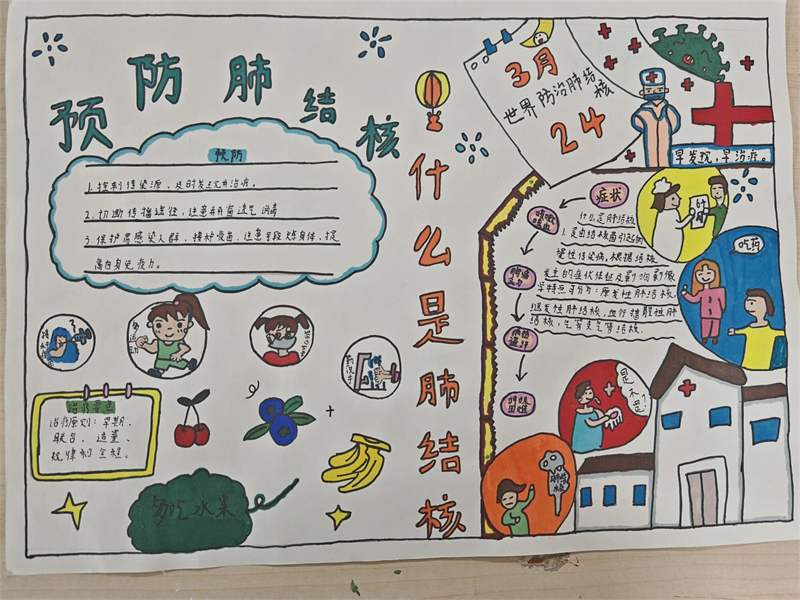 预防肺结核
预防
1.控制传染源,及时发现并治疗。
2.切断传播途径,注意开窗透气消毒
3.保护易感染人群,接种疫苗,注意多锻炼身体,提
高自身免疫力。
多运动
治疗要点
治疗原则:早期、
联合、适量、
规律和全程。
多吃水果
什么是肺结核
3月
世界防治肺结核
24
早发现,早治疗。
症状
咳嗽
咳血
什么是肺结核
1.是由结核菌引起的
慢性传染病,根据结核
发生的症状
学特点可分为:原发性肺结核,
继发性肺结核,血行播散性肺
结核,气管支气管结核.
胸痛
呼吸
困难
吃药